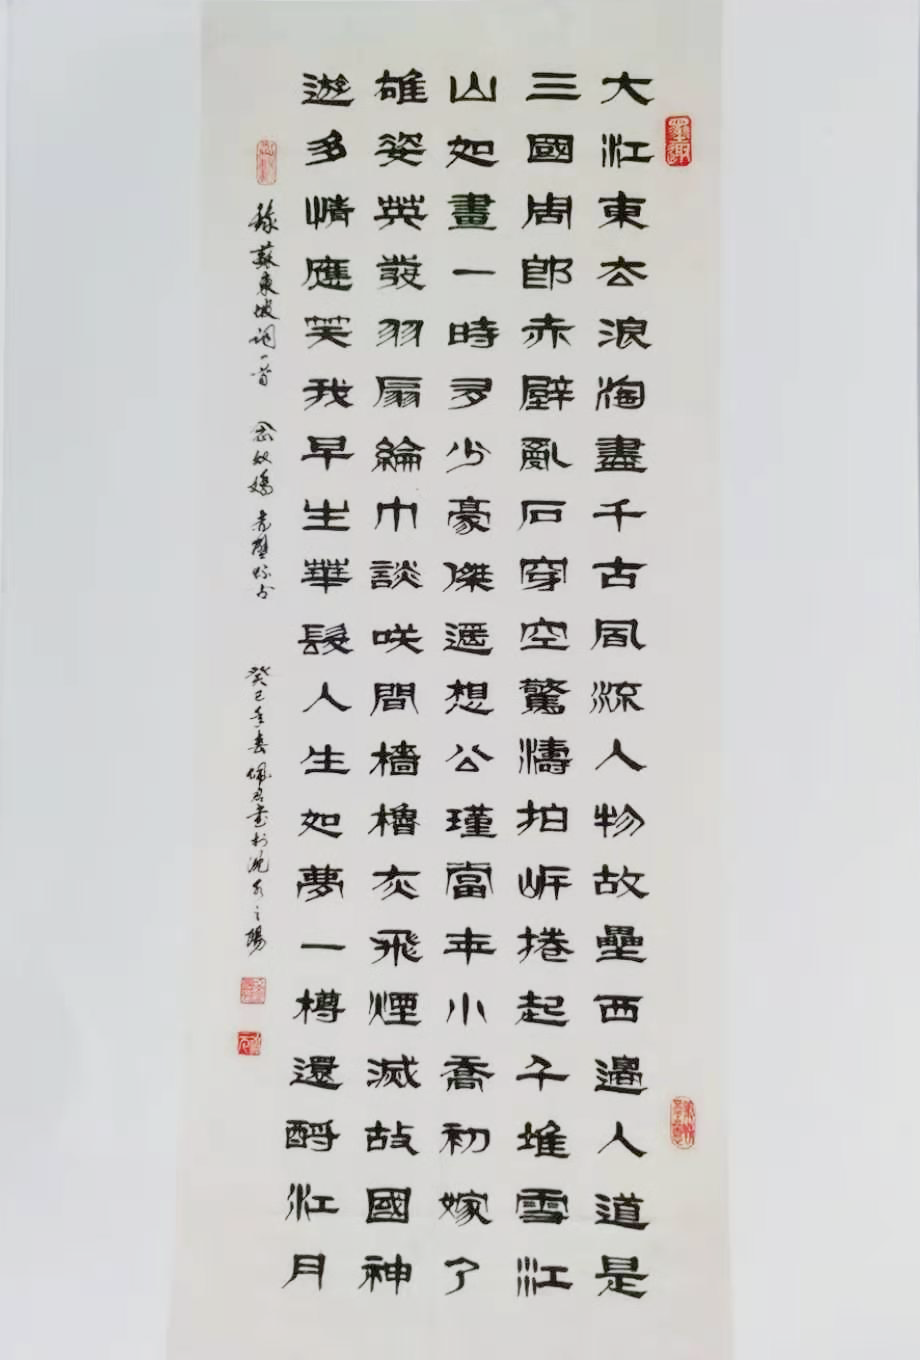 大江東去浪淘盡千古風流人物故壘西邊人道是
三國周郎赤壁亂石穿空驚濤拍岸捲起千堆雪江
山如畫一時多少豪傑遥想公瑾當年小喬初嫁了
雄姿英發羽扇綸巾談咲間檣櫓灰飛煙滅故國神
遊多情應笑我早生華髮人生如夢一樽還酹江月
錄蘇東坡詞一首 念奴嬌赤壁懷古 癸巳年春佩君書於沈水之陽
墨趣